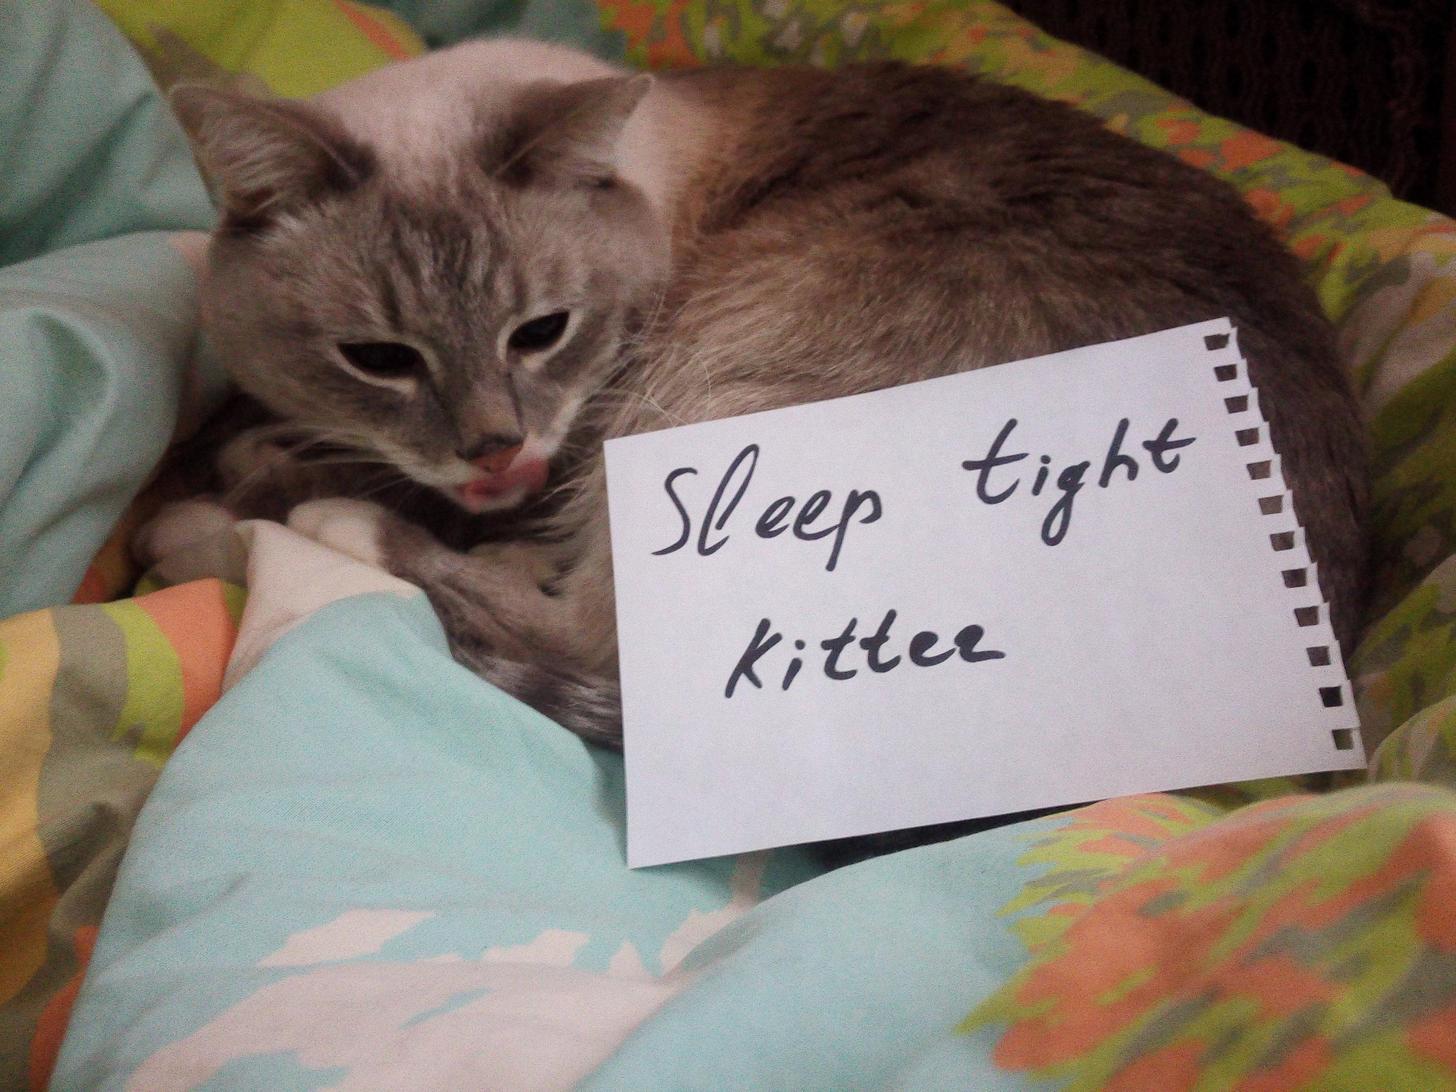 Sleep tight
Kittee